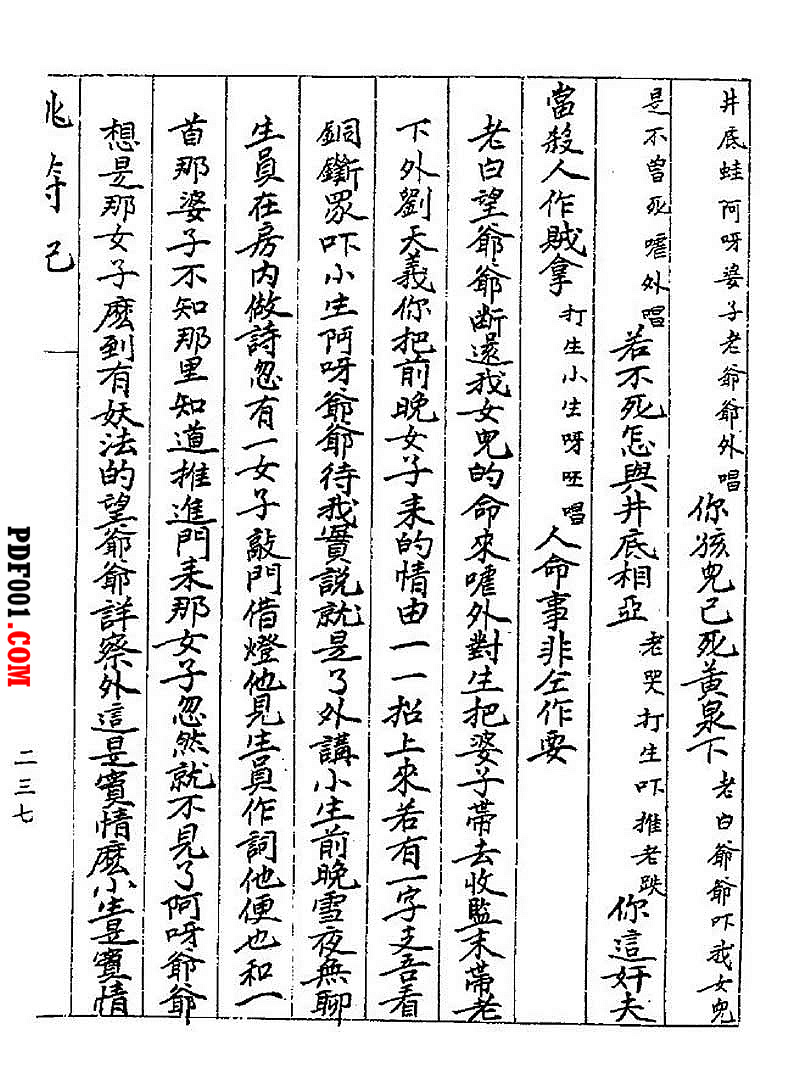 井底蛙阿呀婆子老爺爺外唱你孩兒已死黃泉下老白爺爺吓我女兒
是不曾死嚯外唱若不死怎與井底相亞老哭打生吓推老跌你這奸夫
當殺人作賊拿打生小生呀呸唱人命事非仝作耍
老白望爺爺斷還我女兒的命來嚯外對生把婆子帶去收監末帶老
下外劉天義你把前晚女子来的情由一一招上來若有一字支吾看
銅鍘眾吓小生阿呀爺爺待我實說就是了外講小生前晚雪夜無聊
生員在房內做詩忽有一女子敲門借燈他見生員作詞他便也和一
首那婆子不知那里知道推進門来那女子忽然就不見了阿呀爺爺
想是那女子麽到有妖法的望爺爺詳察外這是實情麽小生是實情
二三七
PDF001.COM